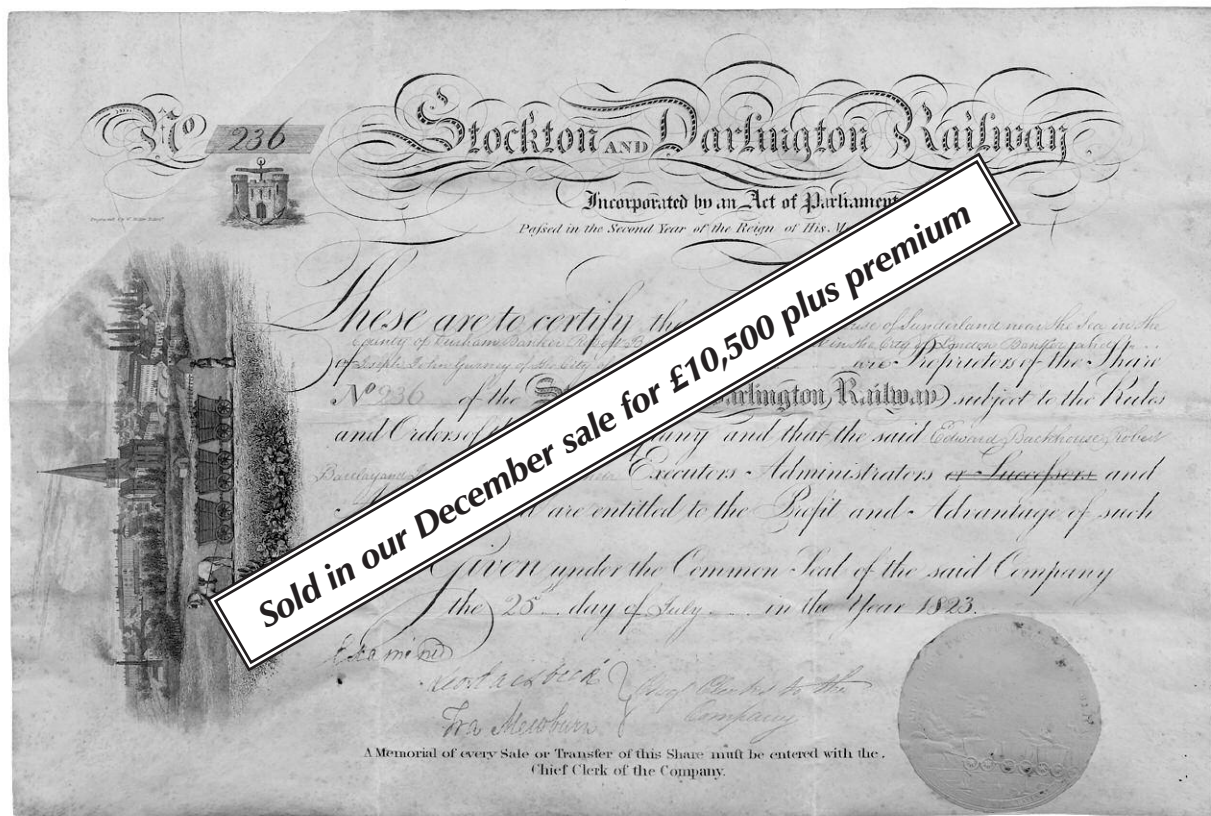 No 236
Stockton AND Darlington Railway.
Incorporated by an Act of Parliament
Passed in the Second Year of the Reign of His M
These are to certify, th of Sunderland near the Sea in the
County of Durham Banker Robert B in the City of London Banker
of Joseph John Gurney of the City of are Proprietors of the Share
No 236 of the S arlington Railway) subject to the Rules
and Orders of pany and that the said Edward Backhouse, Robert
Barclay and Executors Administrators or Successors and
are entitled to the Profit and Advantage of such
Given under the Common Seal of the said Company
the 25 day of July in the Year 1823.
Examined
Fra Mewburn
Company
A Memorial of every Sale or Transfer of this Share must be entered with the
Chief Clerk of the Company.
Sold in our December sale for £10,500 plus premium